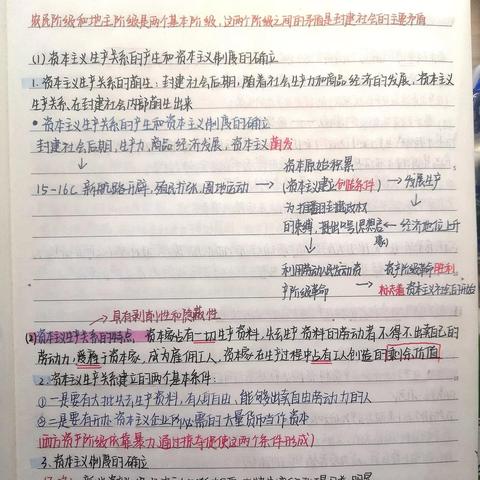 农民阶级和地主阶级是两个基本阶级,这两个阶级之间的矛盾是封建社会的主要矛盾
(1)资本主义生产关系的产生和资本主义制度的确立
1.资本主义生产关系的萌生:封建社会后期,随着社会生产力和商品经济的发展,资本主义
生产关系在封建社会内部萌生出来
•资本主义生产关系的产生和资本主义制度的确立
封建社会后期,生产力,商品经济发展,资本主义萌发
↓
15-16C 新航路开辟,殖民扩张,圈地运动 →
资本原始积累
(资本主义建立创造条件) → 发展生产
为推翻封建政权
的束缚,提出口号(思想启 ← 经济地位上升
↓
利用劳动人民运动资 资产阶级革命胜利
产阶级革命 → 标志着资本主义社会的开始
→具有剥削性和隐蔽性
(2)资本主义生产关系的特点 资本家占有一切生产资料,失去生产资料的劳动者不得不出卖自己的
劳动力,受雇于资本家,成为雇佣工人,资本家在生产过程中占有工人创造的剩余价值
2.资本主义生产关系建立的两个基本条件:
①一是要有大批失去生产资料,有人身自由,能够出卖自由劳动力的人
②二是要有开办资本主义企业所必需的大量货币当作资本
(西方资产阶级依靠暴力通过掠夺使这两个条件形成)
3.资本主义制度的确立